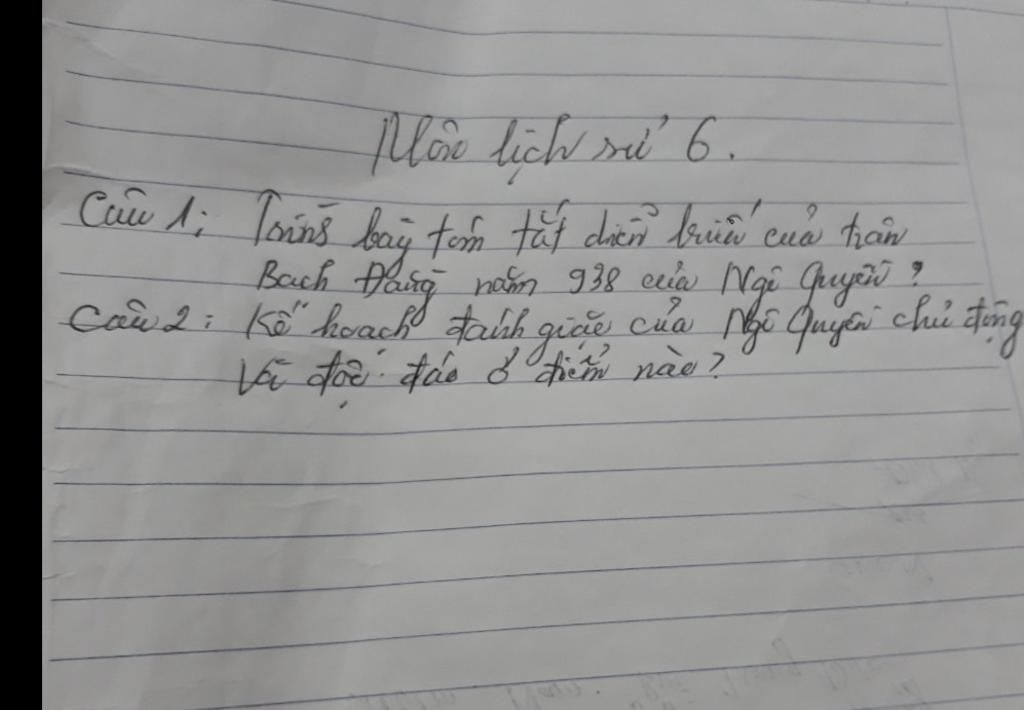 Môn lịch sử 6.
Câu 1: Trình bày tóm tắt diễn biến của trận
Bạch Đằng năm 938 của Ngô Quyền?
Câu 2: Kế hoạch đánh giặc của Ngô Quyền chủ động
Và độc đáo ở điểm nào?